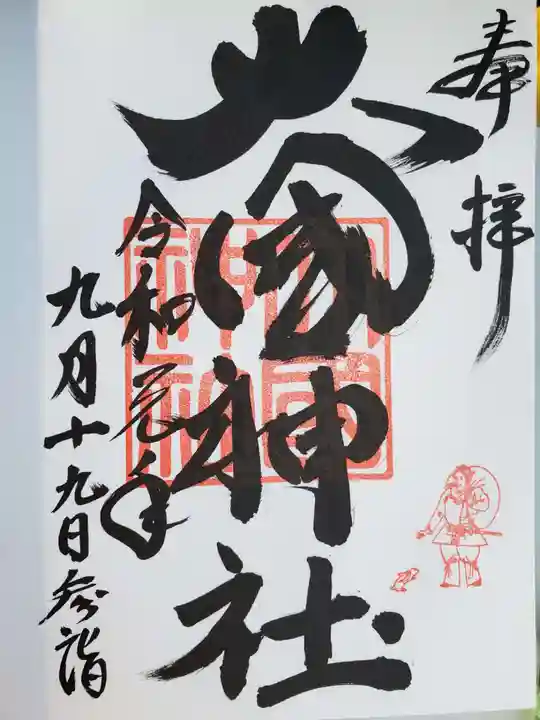 奉拝
大國神社
令和元年
九月十九日参詣
大國
神社